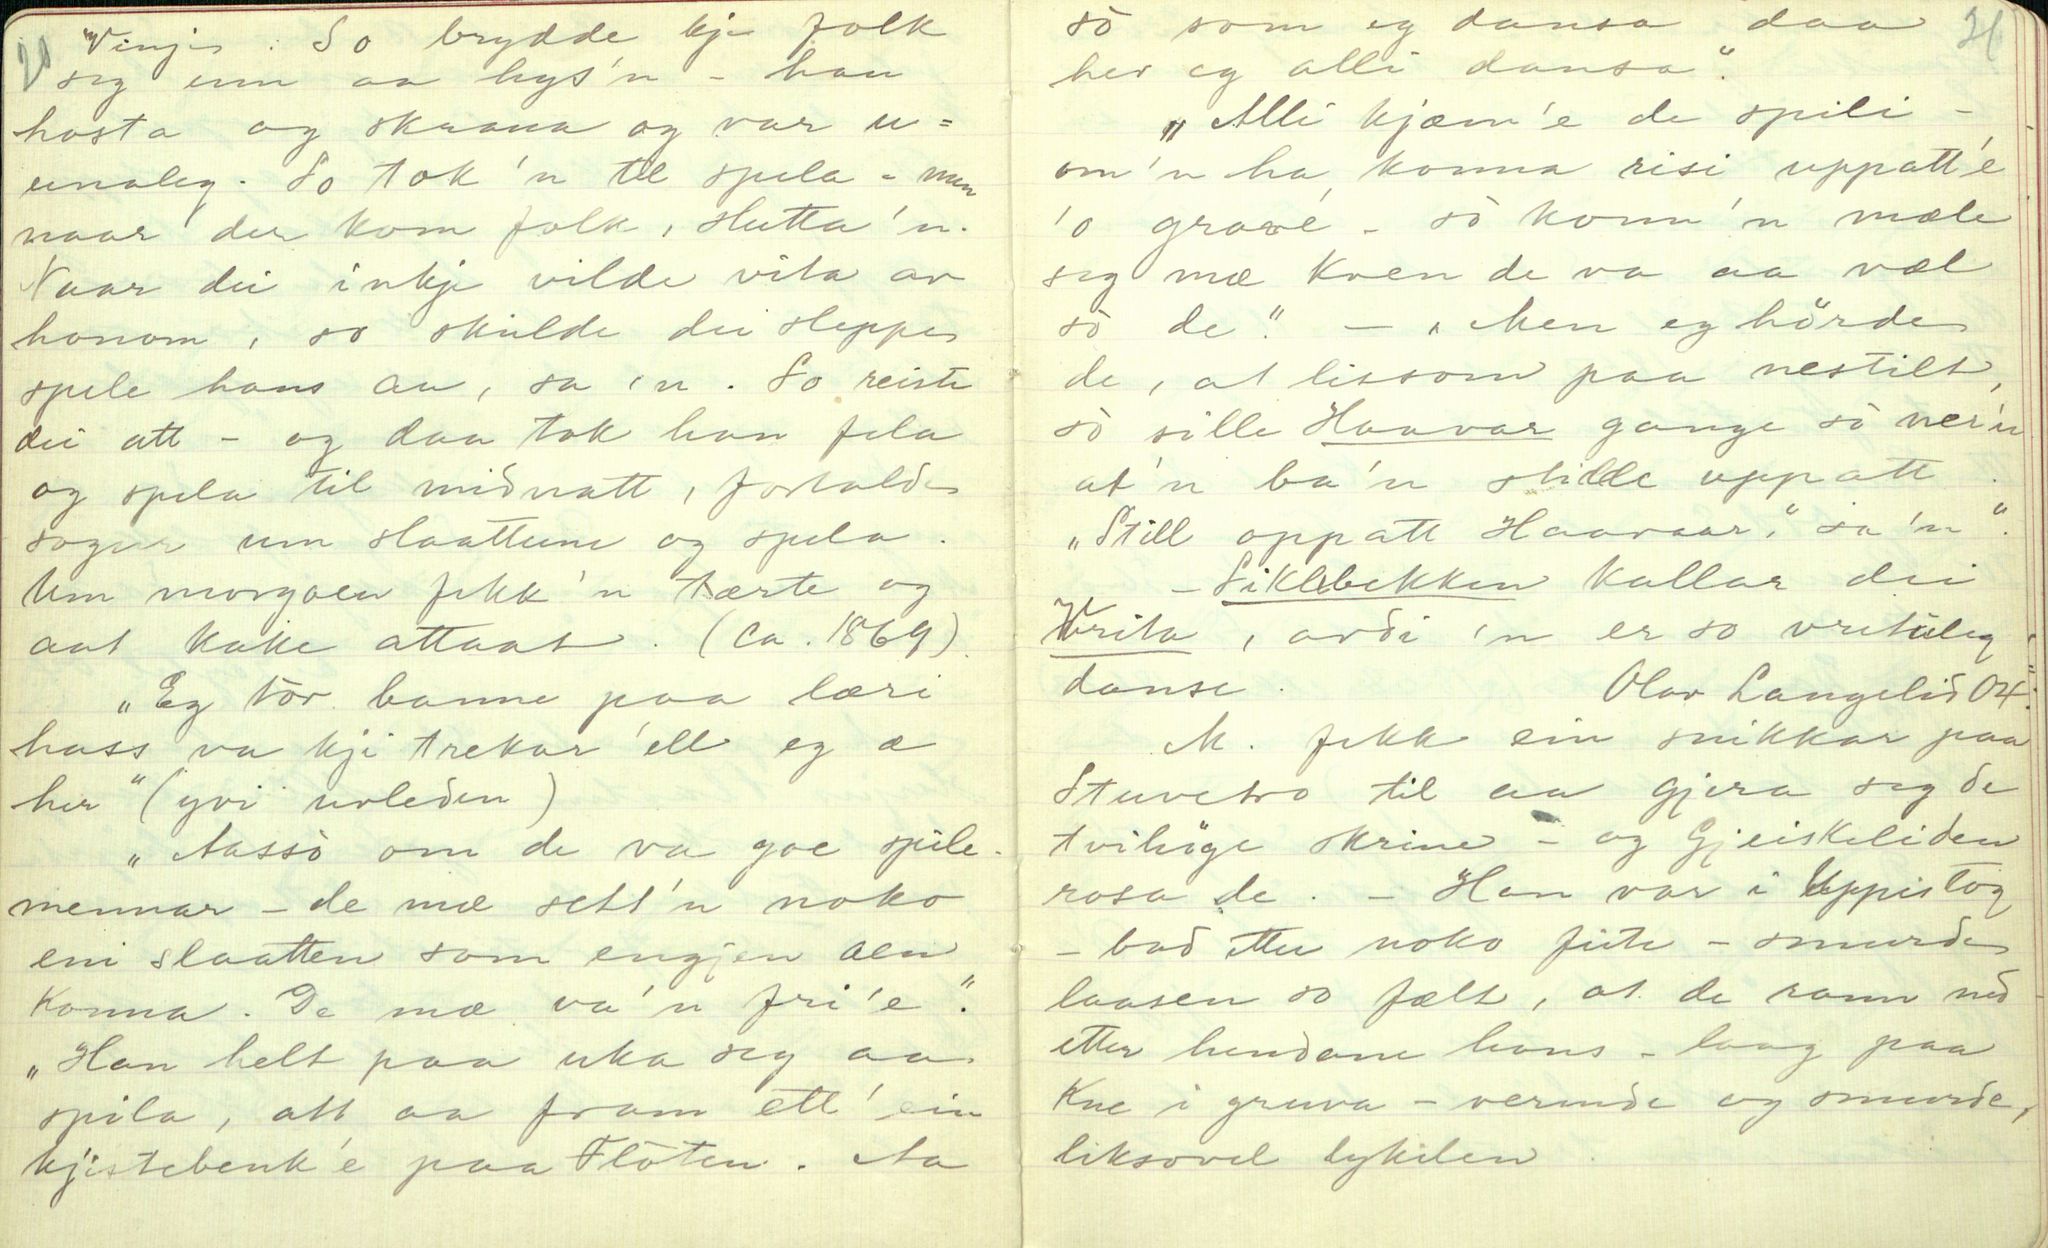 20
"Vinje. So brydde kje folk
seg um aa hys'n - han
hosta og skrana og var u=
unaleg. So tok 'n til spela - men
naar der kom folk, slutta 'n.
Naar dei inkje vilde vita av
honom, so skulde dei sleppe
spele hans au, sa 'n. So reiste
dei att - og daa tok han fela
og spela til midnatt, fortalde
sogur um slaattene og spela.
Um morgoen fekk 'n tærte og
aat kake attaat. (Ca. 1869).
"Eg tòr banne paa læri
hass va kji trekar 'ell eg æ
her" (yvi uvleden)
"Aassò om de va goe spele-
mennar - de mæ sett'n noko
eni slaatten som engjen aen
konna. De mæ va'n fri'e".
"Han helt paa uka seg aa
spila, att aa fram ett' ein
kjistebenk'e paa Flòten. Aa
21
sò som eg dansa daa
her eg alli dansa".
"Alli kjæm'e de spili -
om'n ha konna risi uppatt'e
'o grave - sò konn'n mæle
seg mæ kven de va aa væl
sò de". - "Men eg hörde
de, at litsom paa nestilt,
sò sille Haavar gange sò ner'n
at'n ba'n stille uppatt.
"Still oppatt Haavar," sa'n".
- Siklebekken kallar dei
Vrita, avdi 'n er so vrituleg
danse. Olav Langelid 04.
M. fekk ein snikkar paa
Stuvetro til aa gjera seg de
tvihöge skrine - og Gjeiskeliden
rosa de. - Han var i Uppistog
- bad etter noko feite - smurde
laasen so fælt, at de rann ned
etter hendane hans - laag paa
kne i gruva - vermde og smurde,
liksovel lykilen